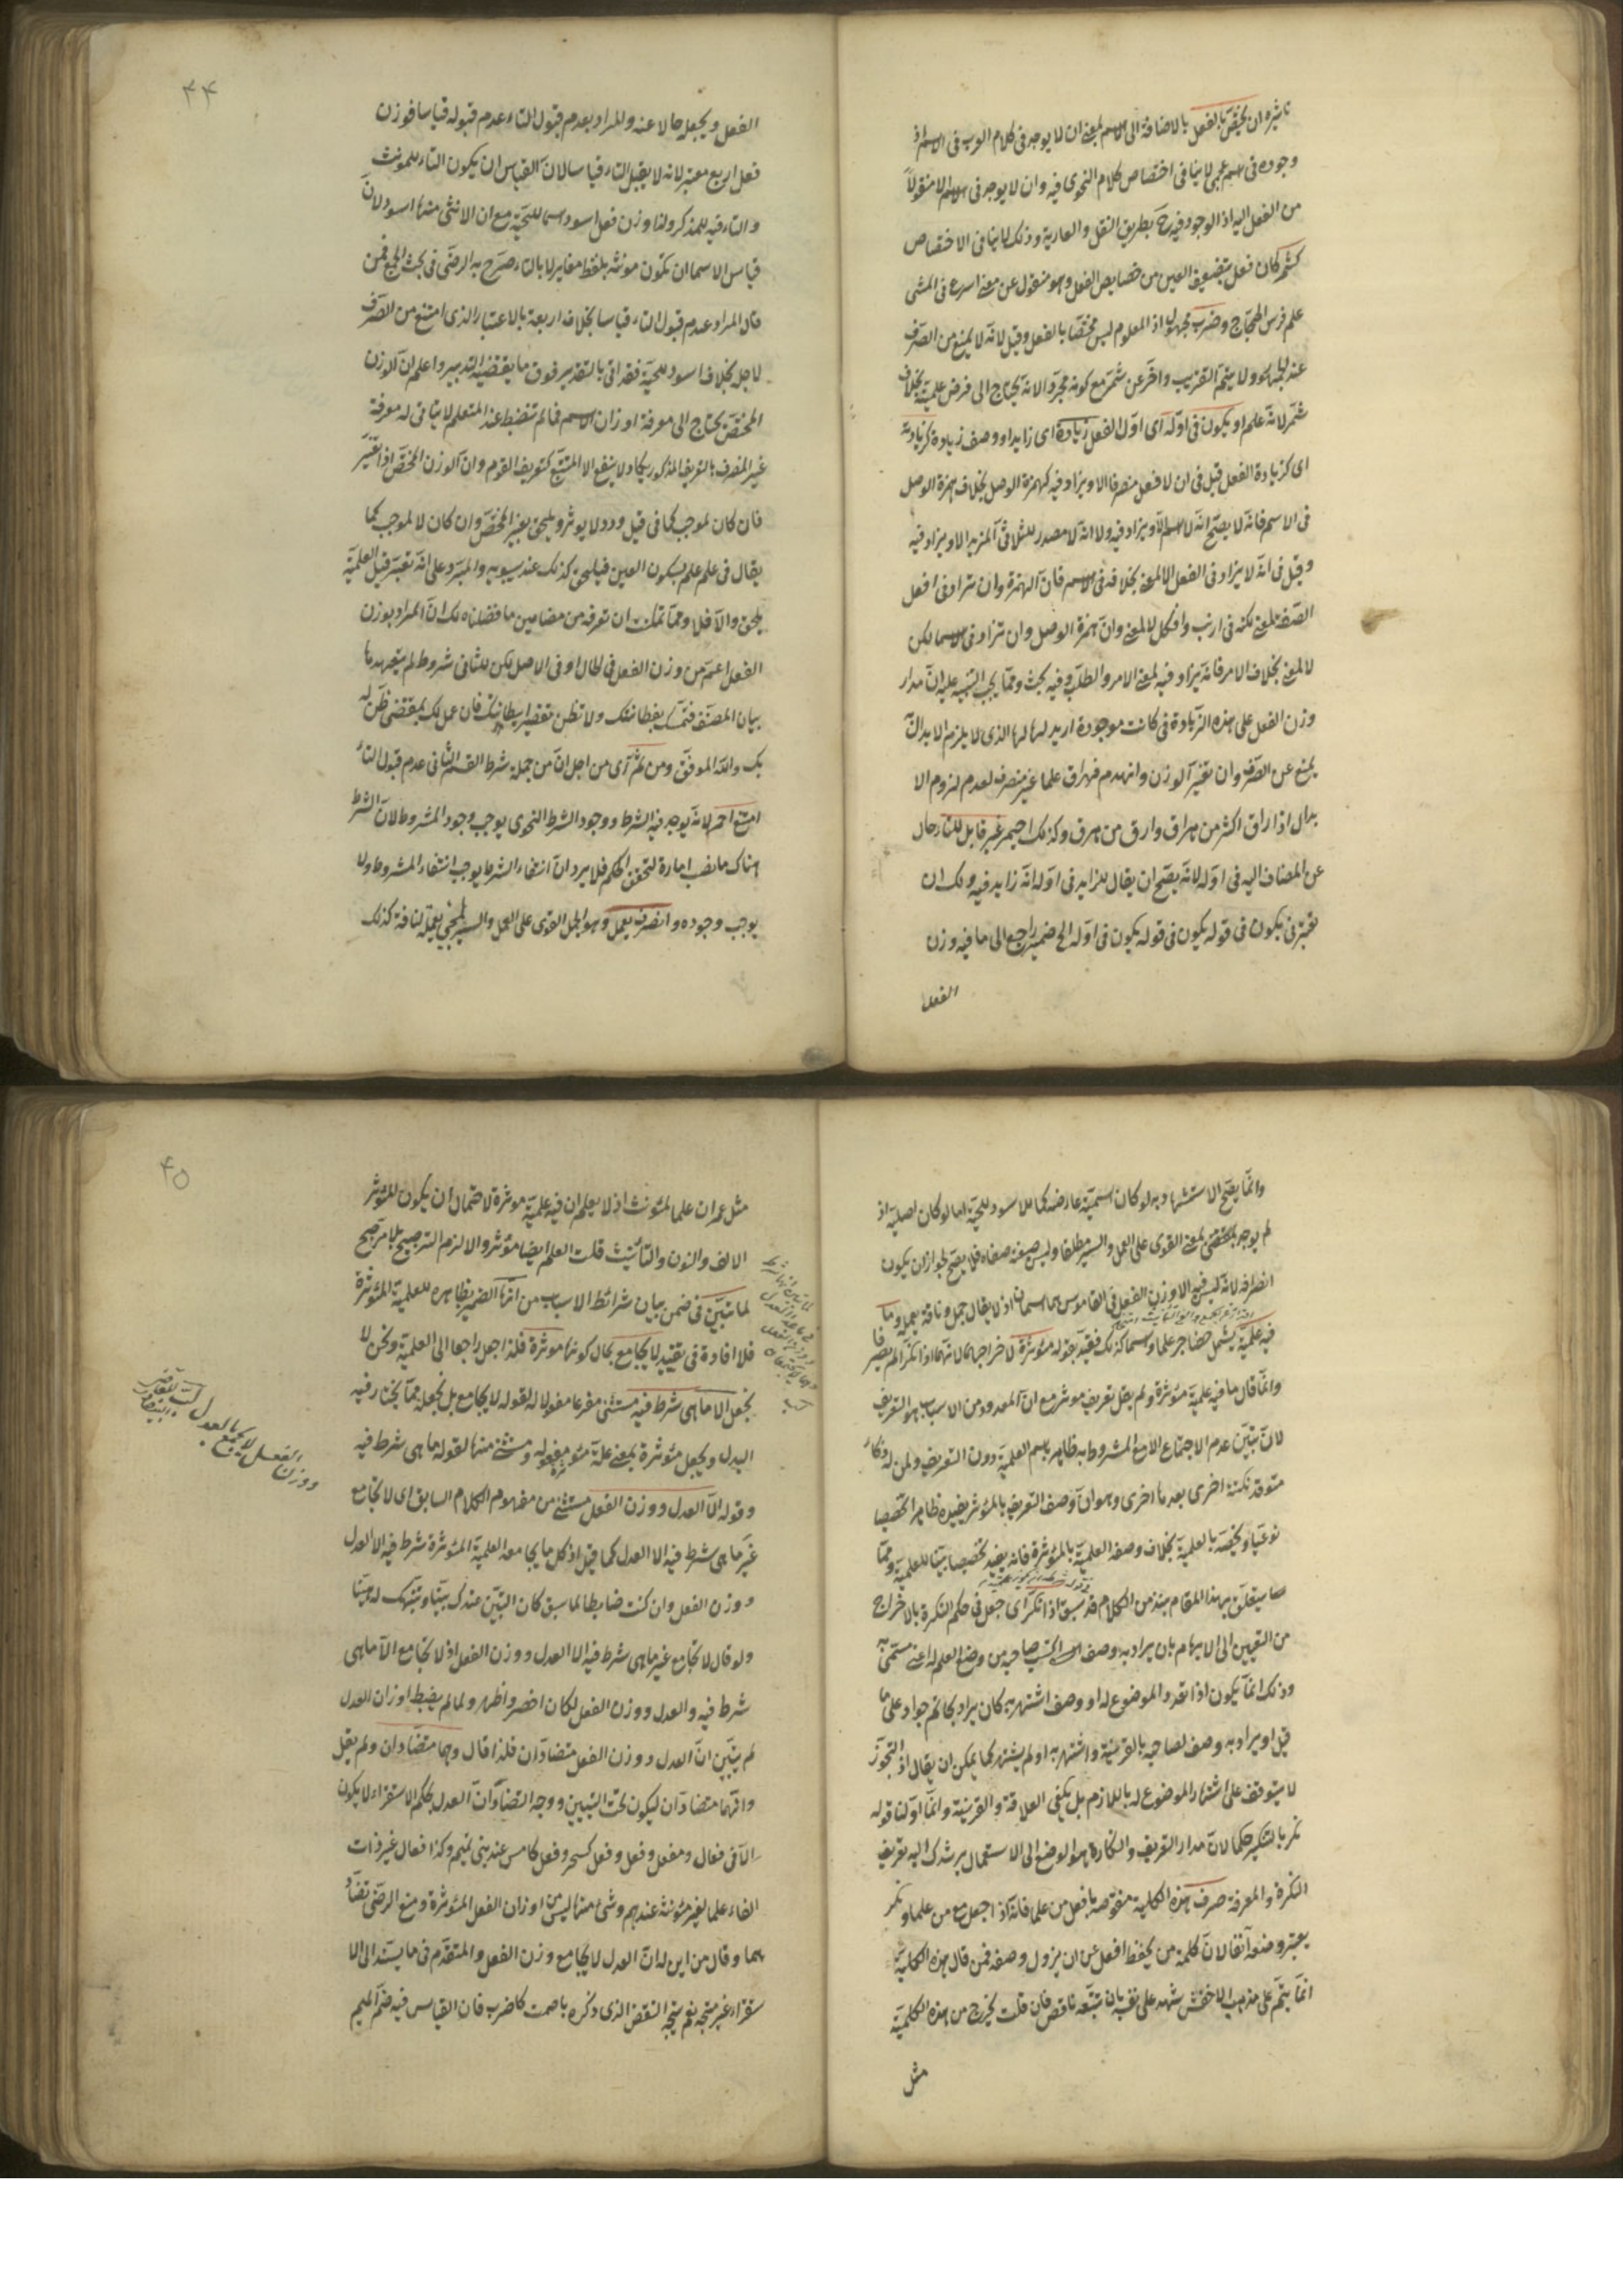 تاثيره ان يختص بالفعل بالاضافة الى الاسم بمعنى ان لا يوجد فى كلام العرب فى الاسم اذ
وجوده فى اسم عجمى لا ينافى اختصاص كلام النحوى فيه وان لا يوجد فى الاسم الا منقولا
من الفعل اليه اذ الوجود فيه ح بطريق النقل والعارية وذلك لا ينافى الاختصاص
كشمر كان فعل بتضعيف العين من خصايص الفعل وهو منقول عن معنى اسرع فى المشى
علم فرس الحجاج وضرب مجهولا اذ المعلوم ليس مختصا بالفعل وقيل لانه لا يمنع من الصرف
عند الجمهور ولا يتم التقريب واخر عن شمر مع كونه مجردا لانه يحتاج الى فرض علمية بخلاف
شمر لانه علم او يكون فى اوله اى اول الفعل زيادة اى زايد او وصف زيادة كزيادته
اى كزيادة الفعل قيل فى ان لا فعل منصرفا الا ويزاد فيه كهمزة الوصل بخلاف همزة الوصل
فى الاسم فانه لا يصح انه لا اسم الا ويزاد فيه ولا انه لا مصدر للثلاثى المزيد الا ويزاد فيه
وقيل فى انه لا يزاد فى الفعل الا لمعنى بخلافه فى الاسم فان الهمزة وان تزاد فى افعل
الصفة لمعنى لكنه فى ارنب وافكل لا لمعنى وان همزة الوصل وان تزاد فى الاسما لكن
لا لمعنى بخلاف الامر فانه يزاد فيه لمعنى الامر والطلب وفيه بحث ومما يجب التنبيه عليه ان مدار
وزن الفعل على هذه الزيادة فى كانت موجودة اريد لها لها الذى لا يلزم الا بدال
يمنع عن الصرف وان تغير الوزن وانهدم فهراق علما غير منصرف لعدم لزوم الا
بدال اذ اراق اكثر من هراق وارق من هرق وكذلك احيمر غير قابل للتاء حال
عن المضاف اليه فى اوله لانه يصح ان يقال للزايد فى اوله انه زايد فيه ولك ان
تعتبر فى يكون فى قوله يكون فى قوله يكون فى اوله الخ ضمير راجع الى ما فيه وزن
الفعل
٤٤
الفعل ويجعله حالا عنه والمراد بعدم قبول التاء عدم قبوله قياسا فوزن
فعل اربع معتبر لانه لا يقبل التاء قياسا لان القياس ان يكون التاء للمونث
والتاء فيه للمذكر ولنا وزن فعل اسود اسما للحية مع ان الانثى منها اسود لان
قياس الاسما ان تكون مونثه بلفظ مغاير لا بالتاء صرح به الرضى فى بحث الجمع فمن
قال المراد عدم قبول التاء قياسا بخلاف اربعة بالاعتبار الذى امتنع من الصرف
لاجله بخلاف اسود للحية فقد اتى بالتقدير فوق ما يقتضيه التدبير واعلم ان الوزن
المختص يحتاج الى معرفة اوزان الاسم فما لم تنضبط عند المتعلم لا يتاتى له معرفة
غير المنصرف بالتعريف المذكور يكاد لا ينفع الا المتتبع كتعريف القوم وان الوزن المختص اذا تغير
فان كان لموجب كما فى قيل وردد لا يوثر ويلحق بغير المختص وان كان لا لموجب كما
يقال فى علم علم بسكون العين فيلحق كذلك عند سيبويه والمبرد على انه تغير قبل العلمية
يلحق والا فلا ومما يمكنك ان تعرفه من مضامين ما فصلناه لك ان المراد بوزن
الفعل اعم من وزن الفعل فى الحال او فى الاصل لكن للثانى شروط لم يتعهدها
بيان المصنف فتمسك بفطانتك ولا تظن تقصير ابطانك فان عمل لك بمقتضى ظن له
بك والله الموفق ومن ثم اى من اجل ان من جملة شرط القسم الثانى عدم قبول التاء
امتنع احمر لانه يوجد فيه الشرط ووجود الشرط النحوى يوجب وجود المشروط لان الشرط
هناك ما نصب امارة لتحقق الحكم فلا يرد ان انتفاء الشرط يوجب انتفاء المشروط ولا
يوجب وجوده وانصرف يعمل وهو الجمل القوى على العمل والسير لمجىء يعملة لناقة كذلك
وانما يصح الاستشهاد به لو كان اسميته عارضة كما للاسود للحية اما لو كان اصلية اذ
لم يوجد بمعنى القوى على العمل والسير مطلقا وليس صيغة صفاه فلا يصح لجواز ان يكون
انصرافه لانه ليس فيه الا وزن الفعل فى القاموس هما اسمان اذ لا يقال جمل وناقة يعملة وما
فيه علمية يشمل حضاجر علما واسما كذلك فقيد بقوله مؤثرة لاخراجهما لانهما اذا نكرا لم يصر فا
وانما قال ما فيه علمية مؤثرة ولم يقل تعريف موثر مع ان المعدود من الاسباب هو التعريف
لان تبين عدم الاجتماع الا مع المشروط به ظاهر باسم العلمية دون التعريف ولمن له ذكاء
متوقد نكتة اخرى بعد ما اخرى وهو ان وصف التعريف بالمؤثر يفيده ظاهرا تخصيصا
نوعيا ويخصه بالعلمية بخلاف وصف العلمية بالمؤثرة فانه يفيد تخصيصا بينا للعلمية ومما
سيتعلق بهذا المقام نبذ من الكلام قد سبق اذا نكر اى جعل فى حكم النكرة بالاخراج
من التعيين الى الابهام بان يراد به وصف اكتسب صاحبه من وضع العلم له اعنى مسمى به
وذلك انما يكون اذا تعدد الموضوع له او وصف اشتهر به كان يراد بحاتم جواد على ما
قيل او يراد به وصف لصاحبه بالقرينة واشتهر به او لم يشتهر كما يمكن ان يقال اذ التجوز
لا يتوقف على اشتهار الموضوع له باللازم بل يكفى العلاقة والقرينة وانما اولنا قوله
نكر بالتنكير حكما لان مدار التعريف والنكارة هو الوضع الى الاستعمال يرشدك اليه تعريف
النكرة والمعرفة صرف هذه الكلية منقوضة بافعل من علما فانه اذا جعل مع من علما ونكر
يعتبر وصفه اتفاقا لان كلمة من يحفظ افعل عن ان يزول وصفه فمن قال هذه الكلية
انما يتم على مذهب الاخفش شهد على نفسه بان تتبعه ناقص فان قلت يخرج من هذه الكلية
مثل
٤٥
مثل عمران علما لمؤنث اذ لا يعلم ان فيه علمية موثرة لاحتمال ان يكون للمؤثر
الالف والنون والتانيث قلت العلم ايضا مؤثر والا لزم الترجيح بلا مرجح
لما تبين فى ضمن بيان شرائط الاسباب من انها الضمير بظاهره للعلمية المؤثرة
فلا افادة فى تقييد لا يجامع بحال كونها موثرة فلذا جعل راجعا الى العلمية ونحن لا
نجعل الا ما هى شرط فيه مستثنى مفرغا مفعولا لقوله لا يجامع بل نجعله مما يختار فيه
البدل ويجعل مؤثرة بمعنى علة مؤثرة مفعوله ومستثنى منها لقوله ما هى شرط فيه
وقوله الا العدل ووزن الفعل مستثنى من مفهوم الكلام السابق اى لا تجامع
غير ما هى شرط فيه الا العدل كما قيل اذ كل ما يجامعه العلمية المؤثرة شرط فيه الا العدل
ووزن الفعل وان كنت ضابطا لما سبق كان التبين عندك بينا وتنبهك له هينا
ولو قال لا تجامع غير ما هى شرط فيه الا العدل ووزن الفعل اذ لا تجامع الا ما هى
شرط فيه والعدل ووزن الفعل لكان اخصر واظهر ولما لم يضبط اوزان العدل
لم يتبين ان العدل ووزن الفعل متضادان فلذا قال وهما متضادان ولم يقل
وانهما متضادان ليكون تحت التبيين ووجه التضاد ان العدل بحكم الاستقراء لا يكون
الا فى فعال ومفعل وفعل وفعل كسحر وفعل كامس عند بنى تميم وكذا فعال غير ذات
الراء علما لغير مؤنثة عندهم وشئ منها ليس من اوزان الفعل المؤثرة ومنع الرضى تضاد
هما وقال من اين له ان العدل لا يجامع وزن الفعل والمتقدم فى ما يستند الى الا
ستقراء غير متجه نعم يتجه النقض الذى ذكره باصمت كاضرب فان القياس فيه ضم الميم
ووزن الفعل لا يجتمع بالعدل